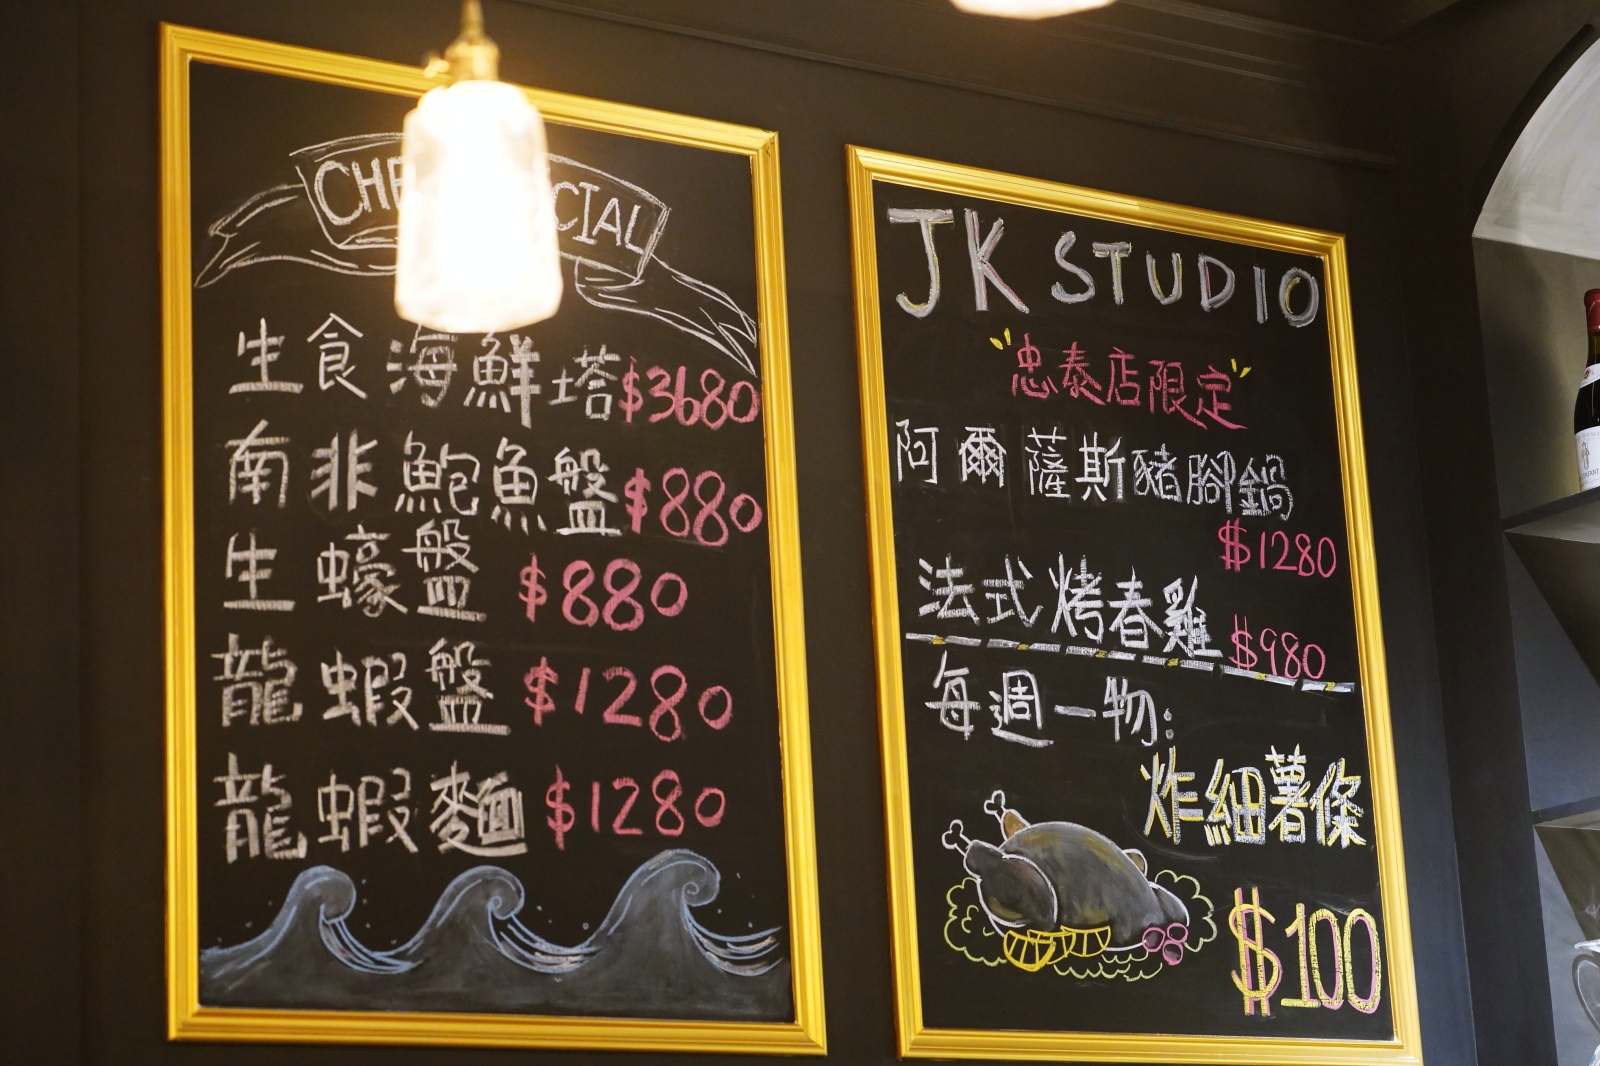 CHE CIAL
生食海鮮塔$3680
南非鮑魚盤$880
生蠔盤 $880
龍蝦盤 $1280
龍蝦麵 $1280
JK STUDIO
"忠泰店限定"
阿爾薩斯豬腳鍋
$1280
法式烤春雞 $980
每週一物:
炸細薯條
$100